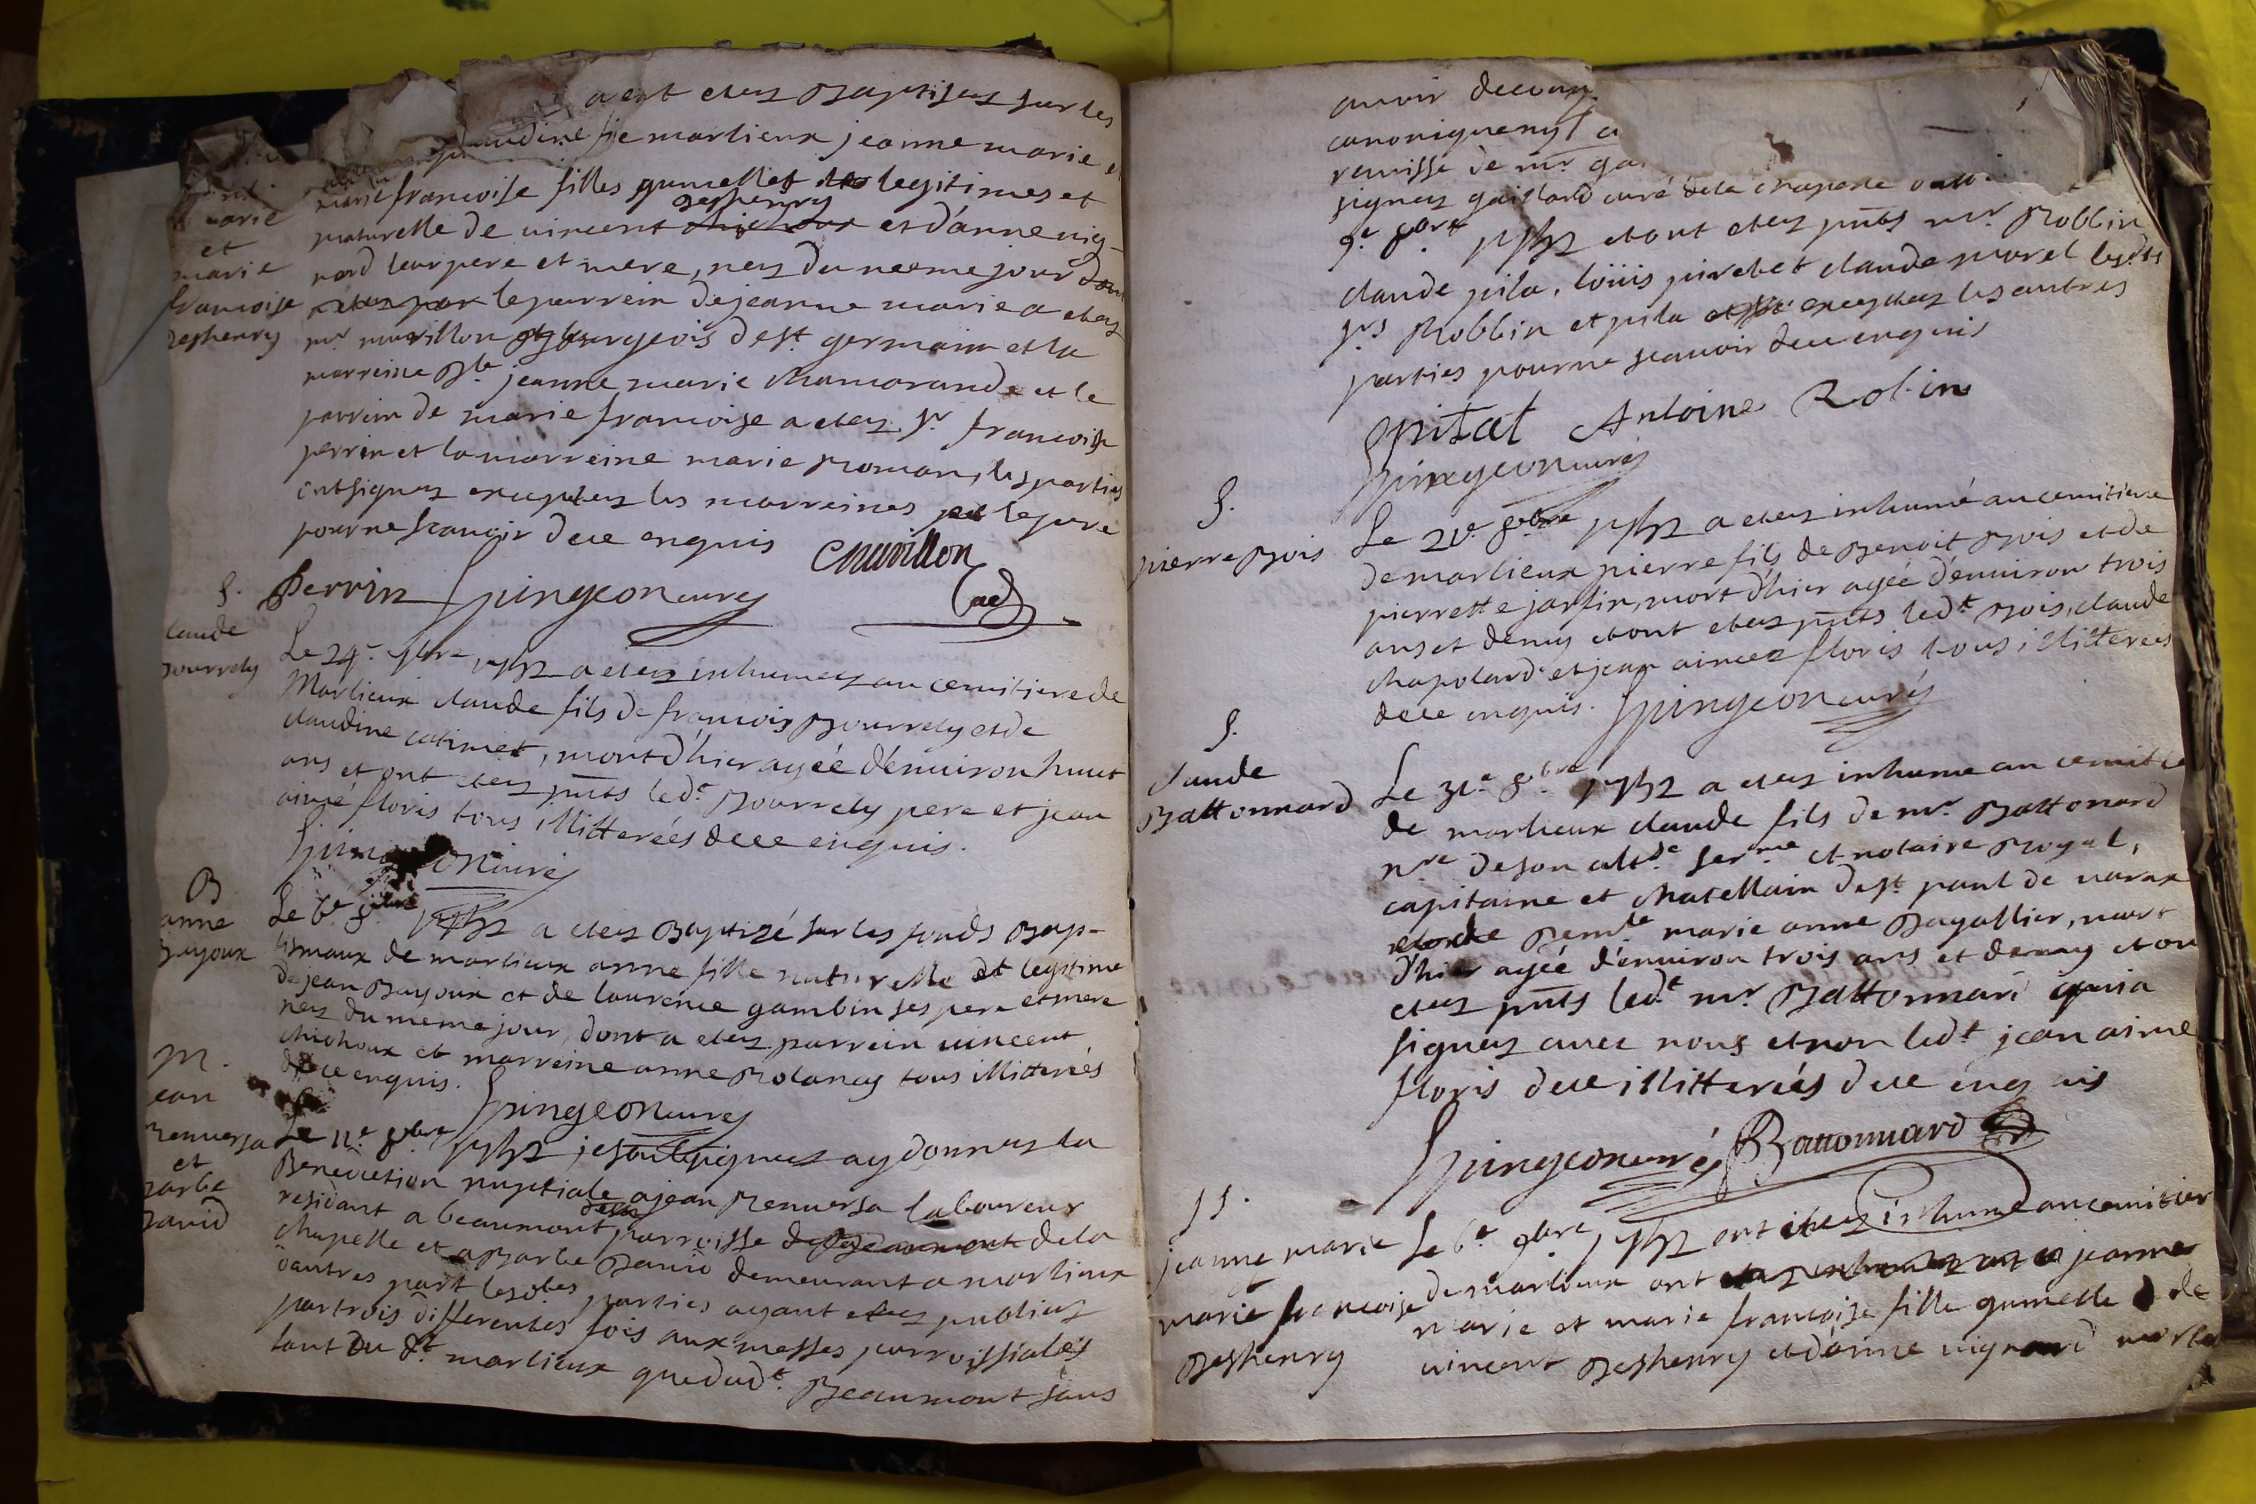 a ont etez Baptisez sur les
de marlieux jeanne marie et
marie francoise filles gumelles legitimes et
Deshenry
naturelle de vincent chichoux et d'anne vig-
nard leur pere et mere, nez du meme jour dont
le parrein de jeanne marie a etez
mr muvillon bourgeois de st. germain et la
marreine Dlle jeanne marie Chamorande et le
parrein de marie francoise a etez sr francoise
perrin et la marreine marie Roman, les parties
ont signez exceptez les marreines et le pere
pour ne scavoir de ce enquis
Perrin Spingeon curez Muvillon
marie
et
marie
francoise
Deshenry
S.
claude
Bourrely
Le 24e 7bre 1752 a etez inhumez au cemitiere de
Marlieux claude fils de francois Bourrely et de
claudine catimet, mort d'hier agéé d'environ huit
ans et ont etez pnts ledt Bourrely pere et jean
aimé floris tous illitteréés de ce enquis.
Spingeon curéz
B
anne
Bujoux
Le 6e 8bre 1752 a etez Baptizé sur les fonds Bap-
tismaux de marlieux anne fille naturelle et legitime
de jean Bujoux et de laurence gambin ses pere et mere
nez du meme jour, dont a etez parrein vincent
chichoux et marreine anne Rolancy tous illitterés
de ce enquis. Spingeon curez
M.
jean
Renversa
et
Barbe
David
Le 11e 8bre 1752 je soussignez ay donnez la
Benediction nuptiale a jean Renversa laboureur
residant a beaumont, parroisse de beaumont de la
chapelle et a Barbe David demeurant a marlieux
dautres part lesdtes parties ayant etez publiez
par trois differentes fois aux messes parroissiales
tant du dt marlieux que dudt Beaumont sans
avoir decouv
canoniquemt
remisse de mr ga
signez gaillard curé de la chapelle
9e 8bre 1752 et ont etez pnts mr Robbin
claude pila, loüis pirebet claude morel lesdts
srs Robbin et pila exceptez les autres
parties pour ne scavoir de ce enquis
Opital Antoine Robin
Spingeon curéz
S.
pierre Bois
Le 21e 8bre 1752 a etez inhumé au cemitiere
de marlieux pierre fils de Benoit Bois et de
pierrette jarlin, mort d'hier agéé d'environ trois
ans et demy et ont etez pnts ledt Bois, claude
chapolard et jean aimez floris tous illitterées
de ce enquis. Spingeon curéz
S.
claude
Battonnard
Le 31e 8bre 1752 a etez inhume au cemitie
de marlieux claude fils de mr Battonard
nre de son altsse serme et notaire Royal,
capitaine et chatellain de st paul de varax
et de Demlle marie anne Bagallier, mort
d'hier agéé d'environ trois ans et demy et on
etez pnts ledt mr Battonnard qui a
signez avec nous et non ledt jean aime
floris de ce illitteréés de ce enquis
Spingeon curéz Battonnard
SS.
jeanne marie
et
marie francoise
Deshenry
Le 6e 9bre 1752 ont etez inhume au cemitier
de marlieux jeanne
marie et marie francoise fille gumelle de
vincent Deshenry et d'anne vignard morte